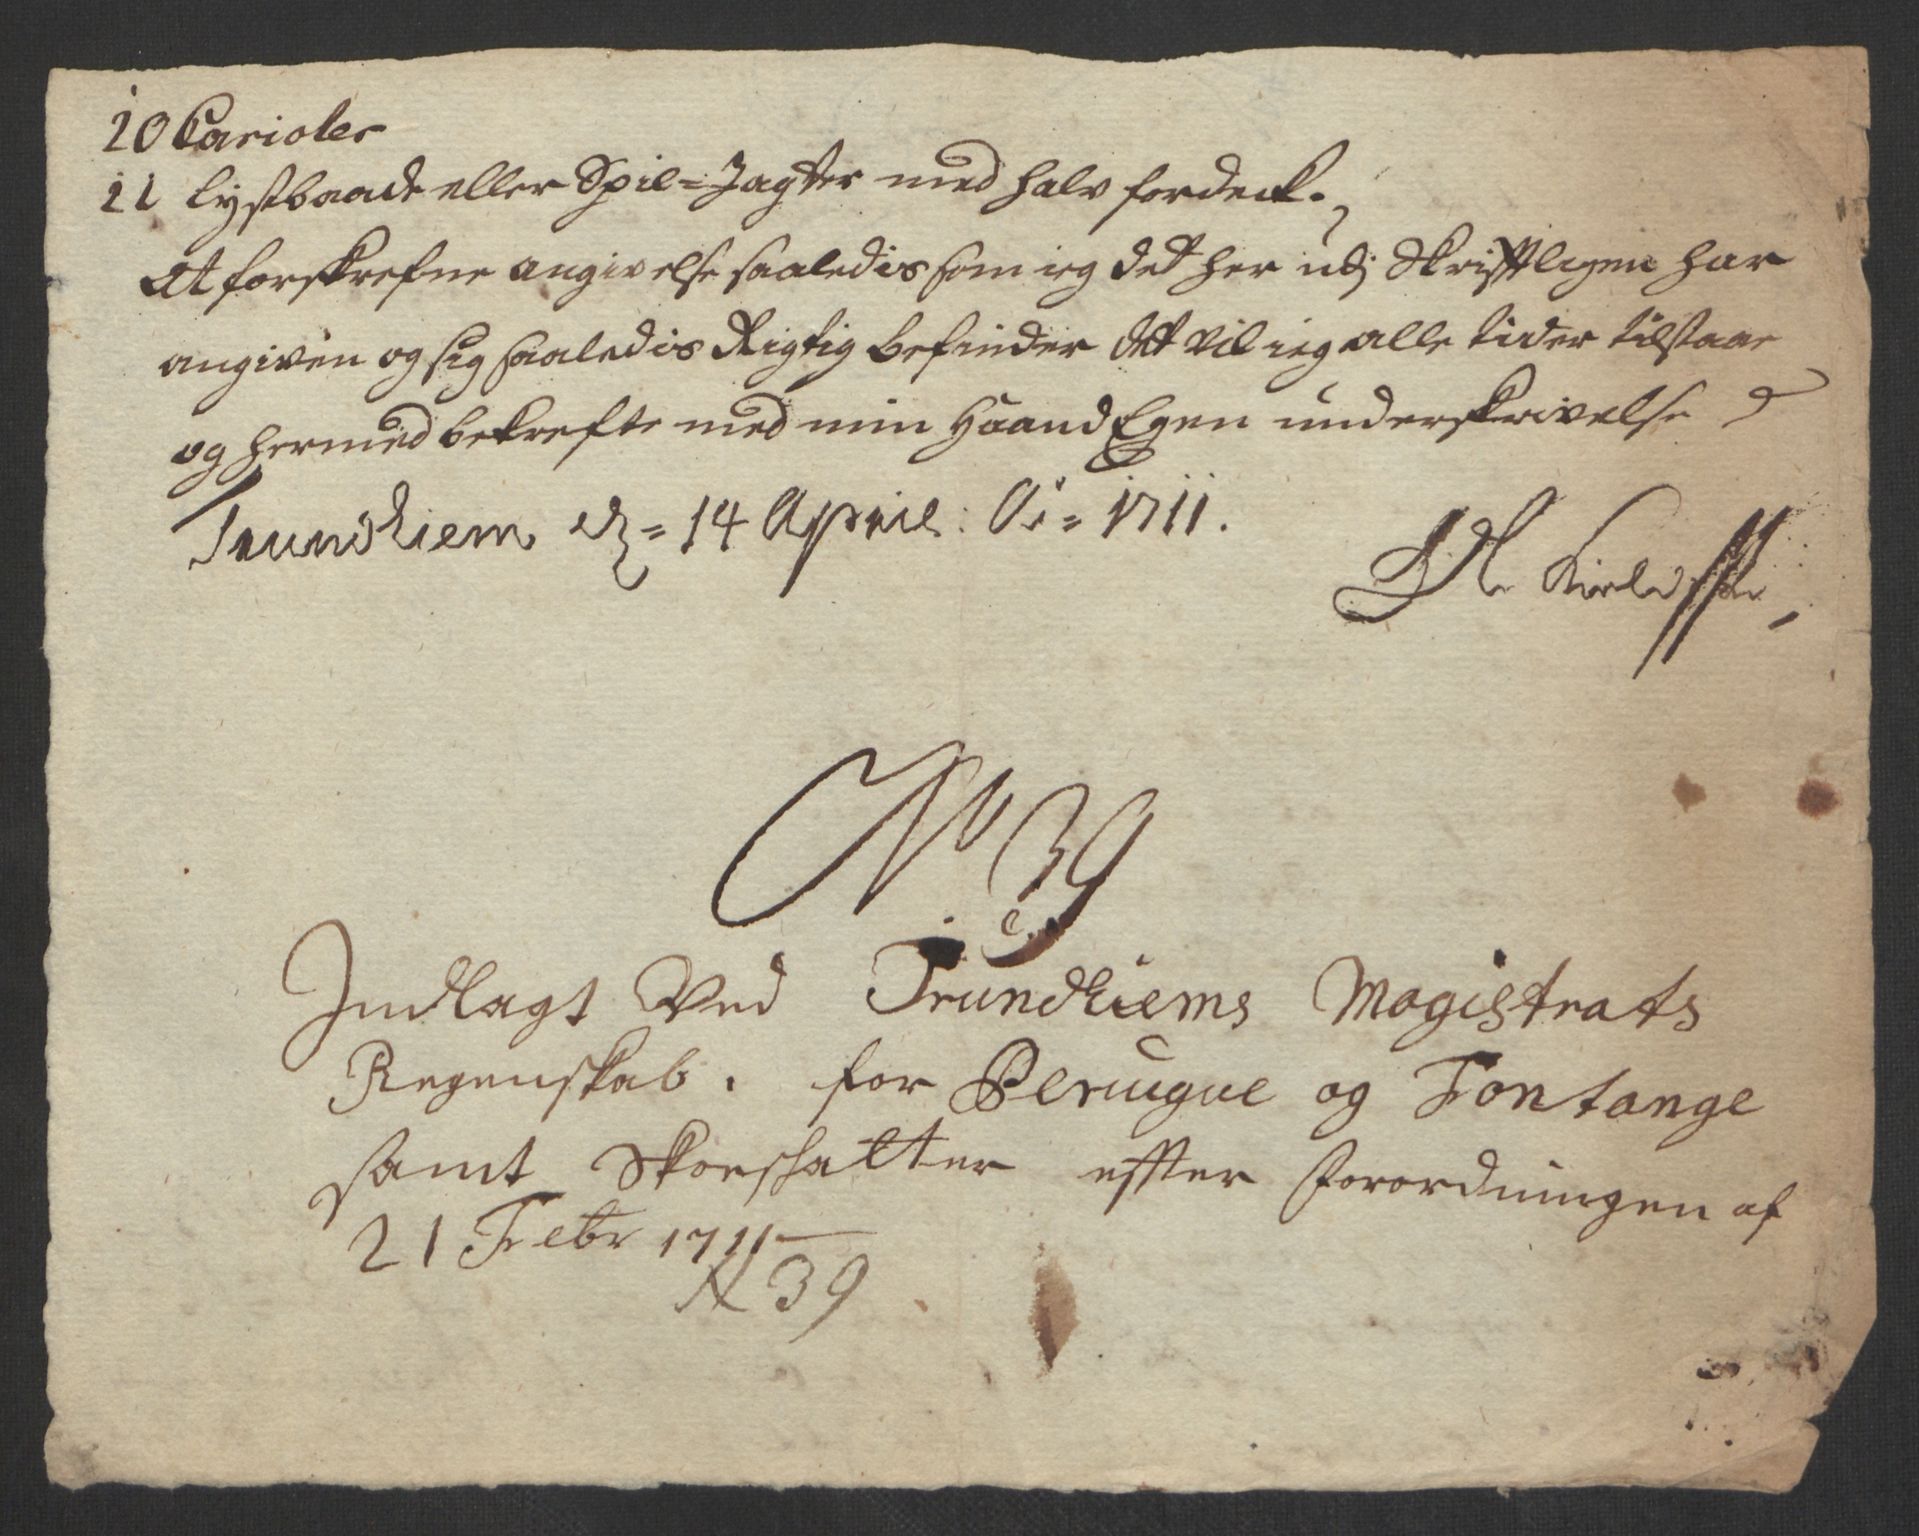 10 Carioler
11 lystbaade eller Spil=Jagter med halv fordeck.
At forskrefne angivelse saaledis som ieg det her udj Skrifftligen har
angiven og sig saaledis Rigtig befinder det vil ieg alle tider tilstaae
og hermed bekrefte med min Haand Egen underskrivelse
Trundhiem d = 14 April: Ao = 1711.
No 39
Indlagt Ved Trundhiems Magistrats
Regenskab. for Peruque og Fontange
samt Skoeshatter effter Forordningen af
21 Febr 1711
N 39